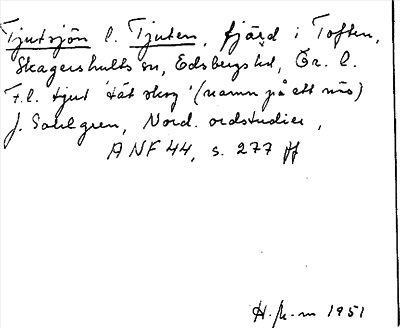 Tjutsjön l. Tjuten, fjärd i Toften,
Skagershults sn, Edsbergs hd, Ör. l.
F.l. tjut 'tät skog' (namn på ett näs)
J. Sahlgren, Nord. ordstudier,
ANF 44, s. 277 ff
H. 1951